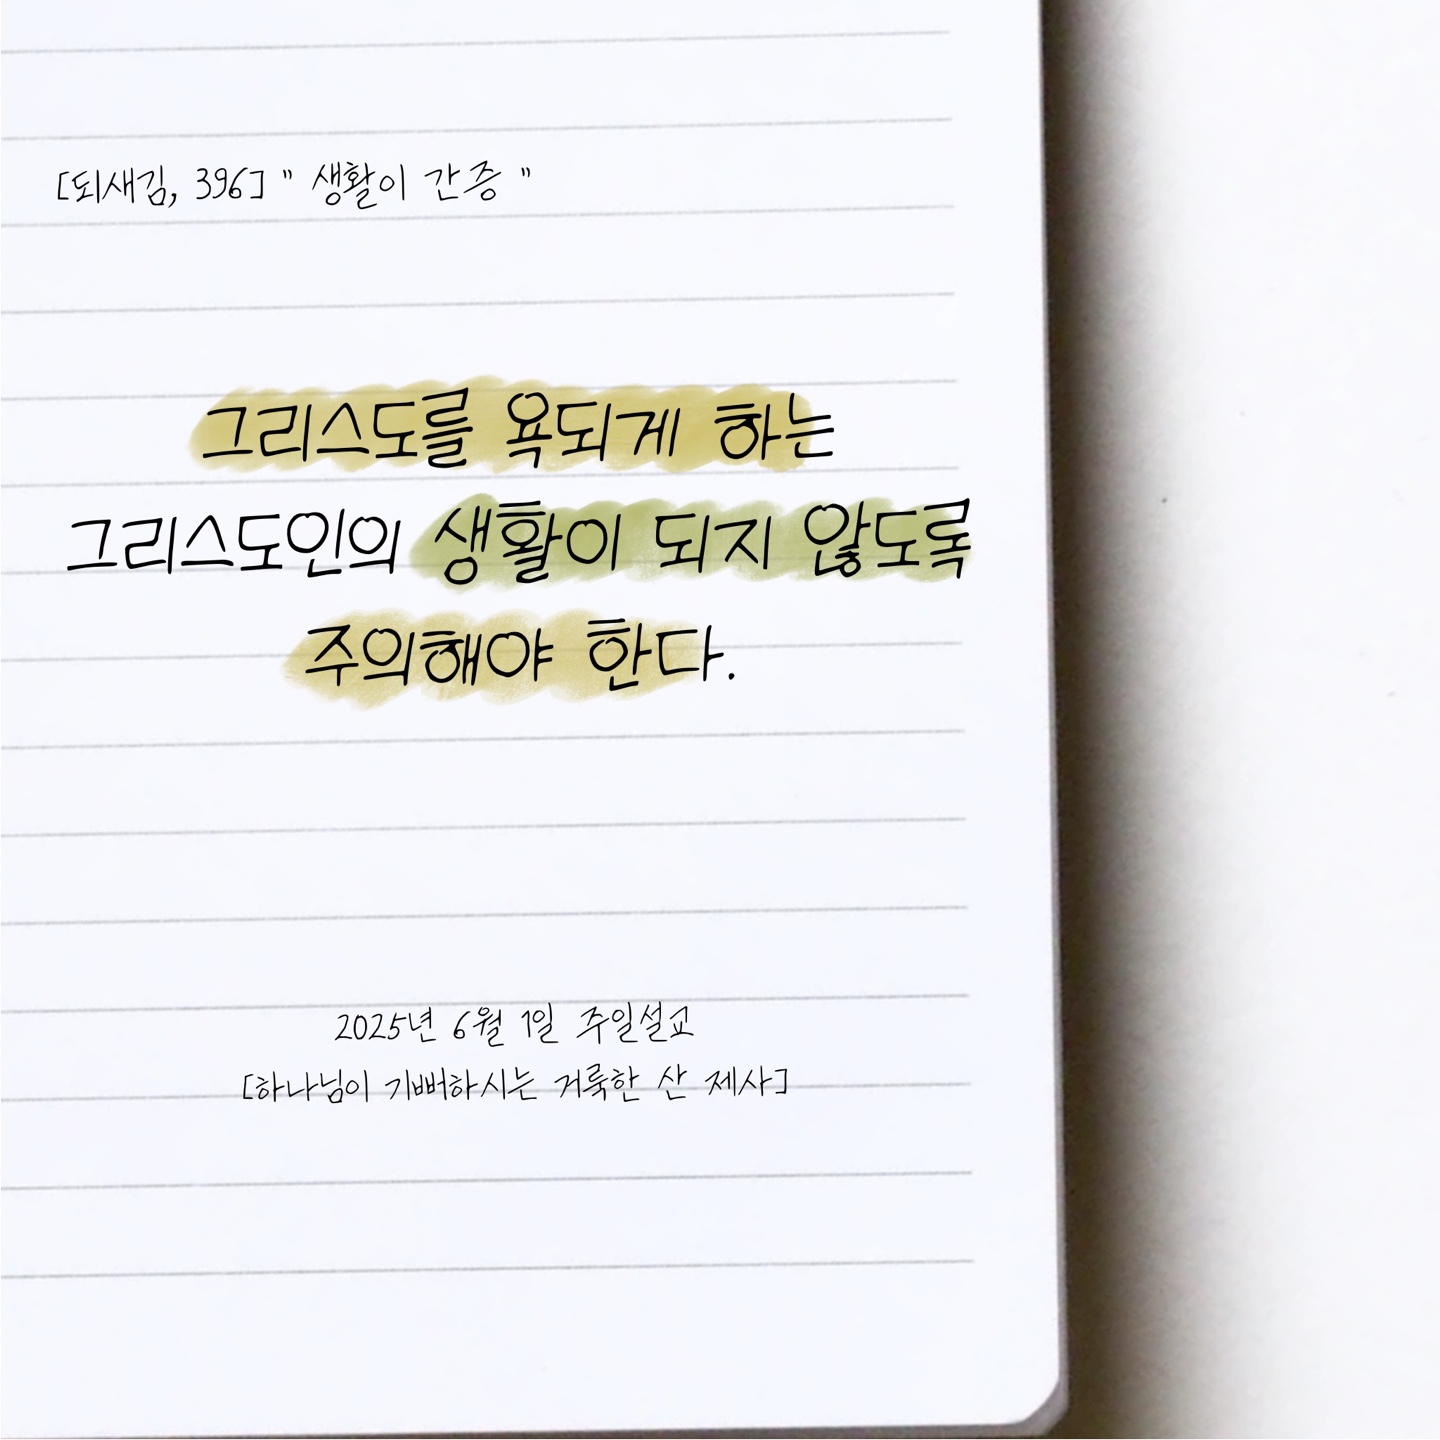 [되새김, 396] " 생활이 간증 "
그리스도를 욕되게 하는
그리스도인의 생활이 되지 않도록
주의해야 한다.
2025년 6월 1일 주일설교
[하나님이 기뻐하시는 거룩한 산 제사]